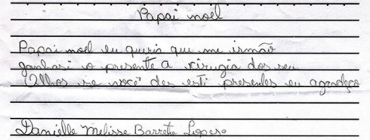 Papai noel
Papai noel eu queria que me irmão
ganhase o presente a cirugia dos seu
olhos se você der esti presentes eu agradeço
Danielle Melisse Barreto Lopes